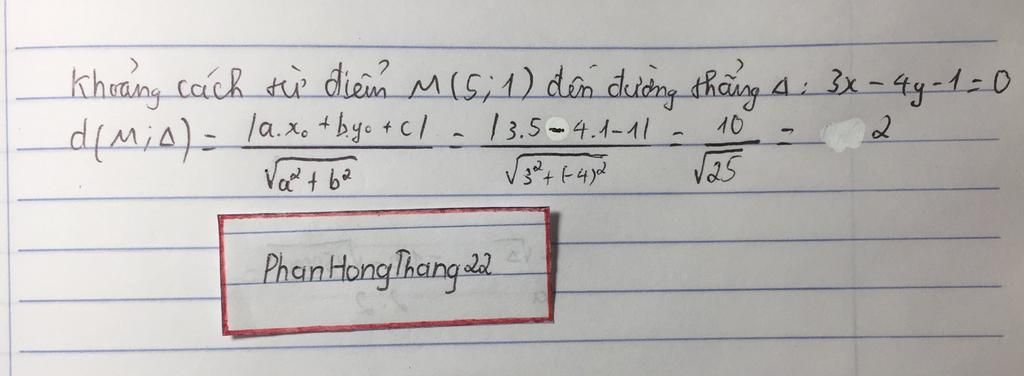 Khoảng cách từ điểm M(5;1) đến đường thẳng Δ: 3x-4y-1=0
d(M;Δ) = |a.x₀ + b.y₀ + c| / √a² + b² = |3.5 - 4.1-1| / √3² + (-4)² = 10 / √25 = 2
PhanHongThang22